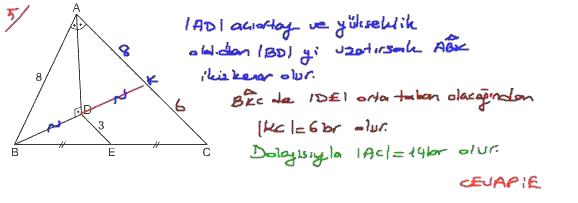 5/
A
8
8
K
D
6
3
B
E
C
|AD| açıortay ve yükseklik
olduğundan |BD| yi uzatırsak ABK
ikizkenar olur.
BKC de |DE| orta taban olacağından
|KC|=6br olur.
Dolayısıyla |AC|=14br olur.
CEVAP:E